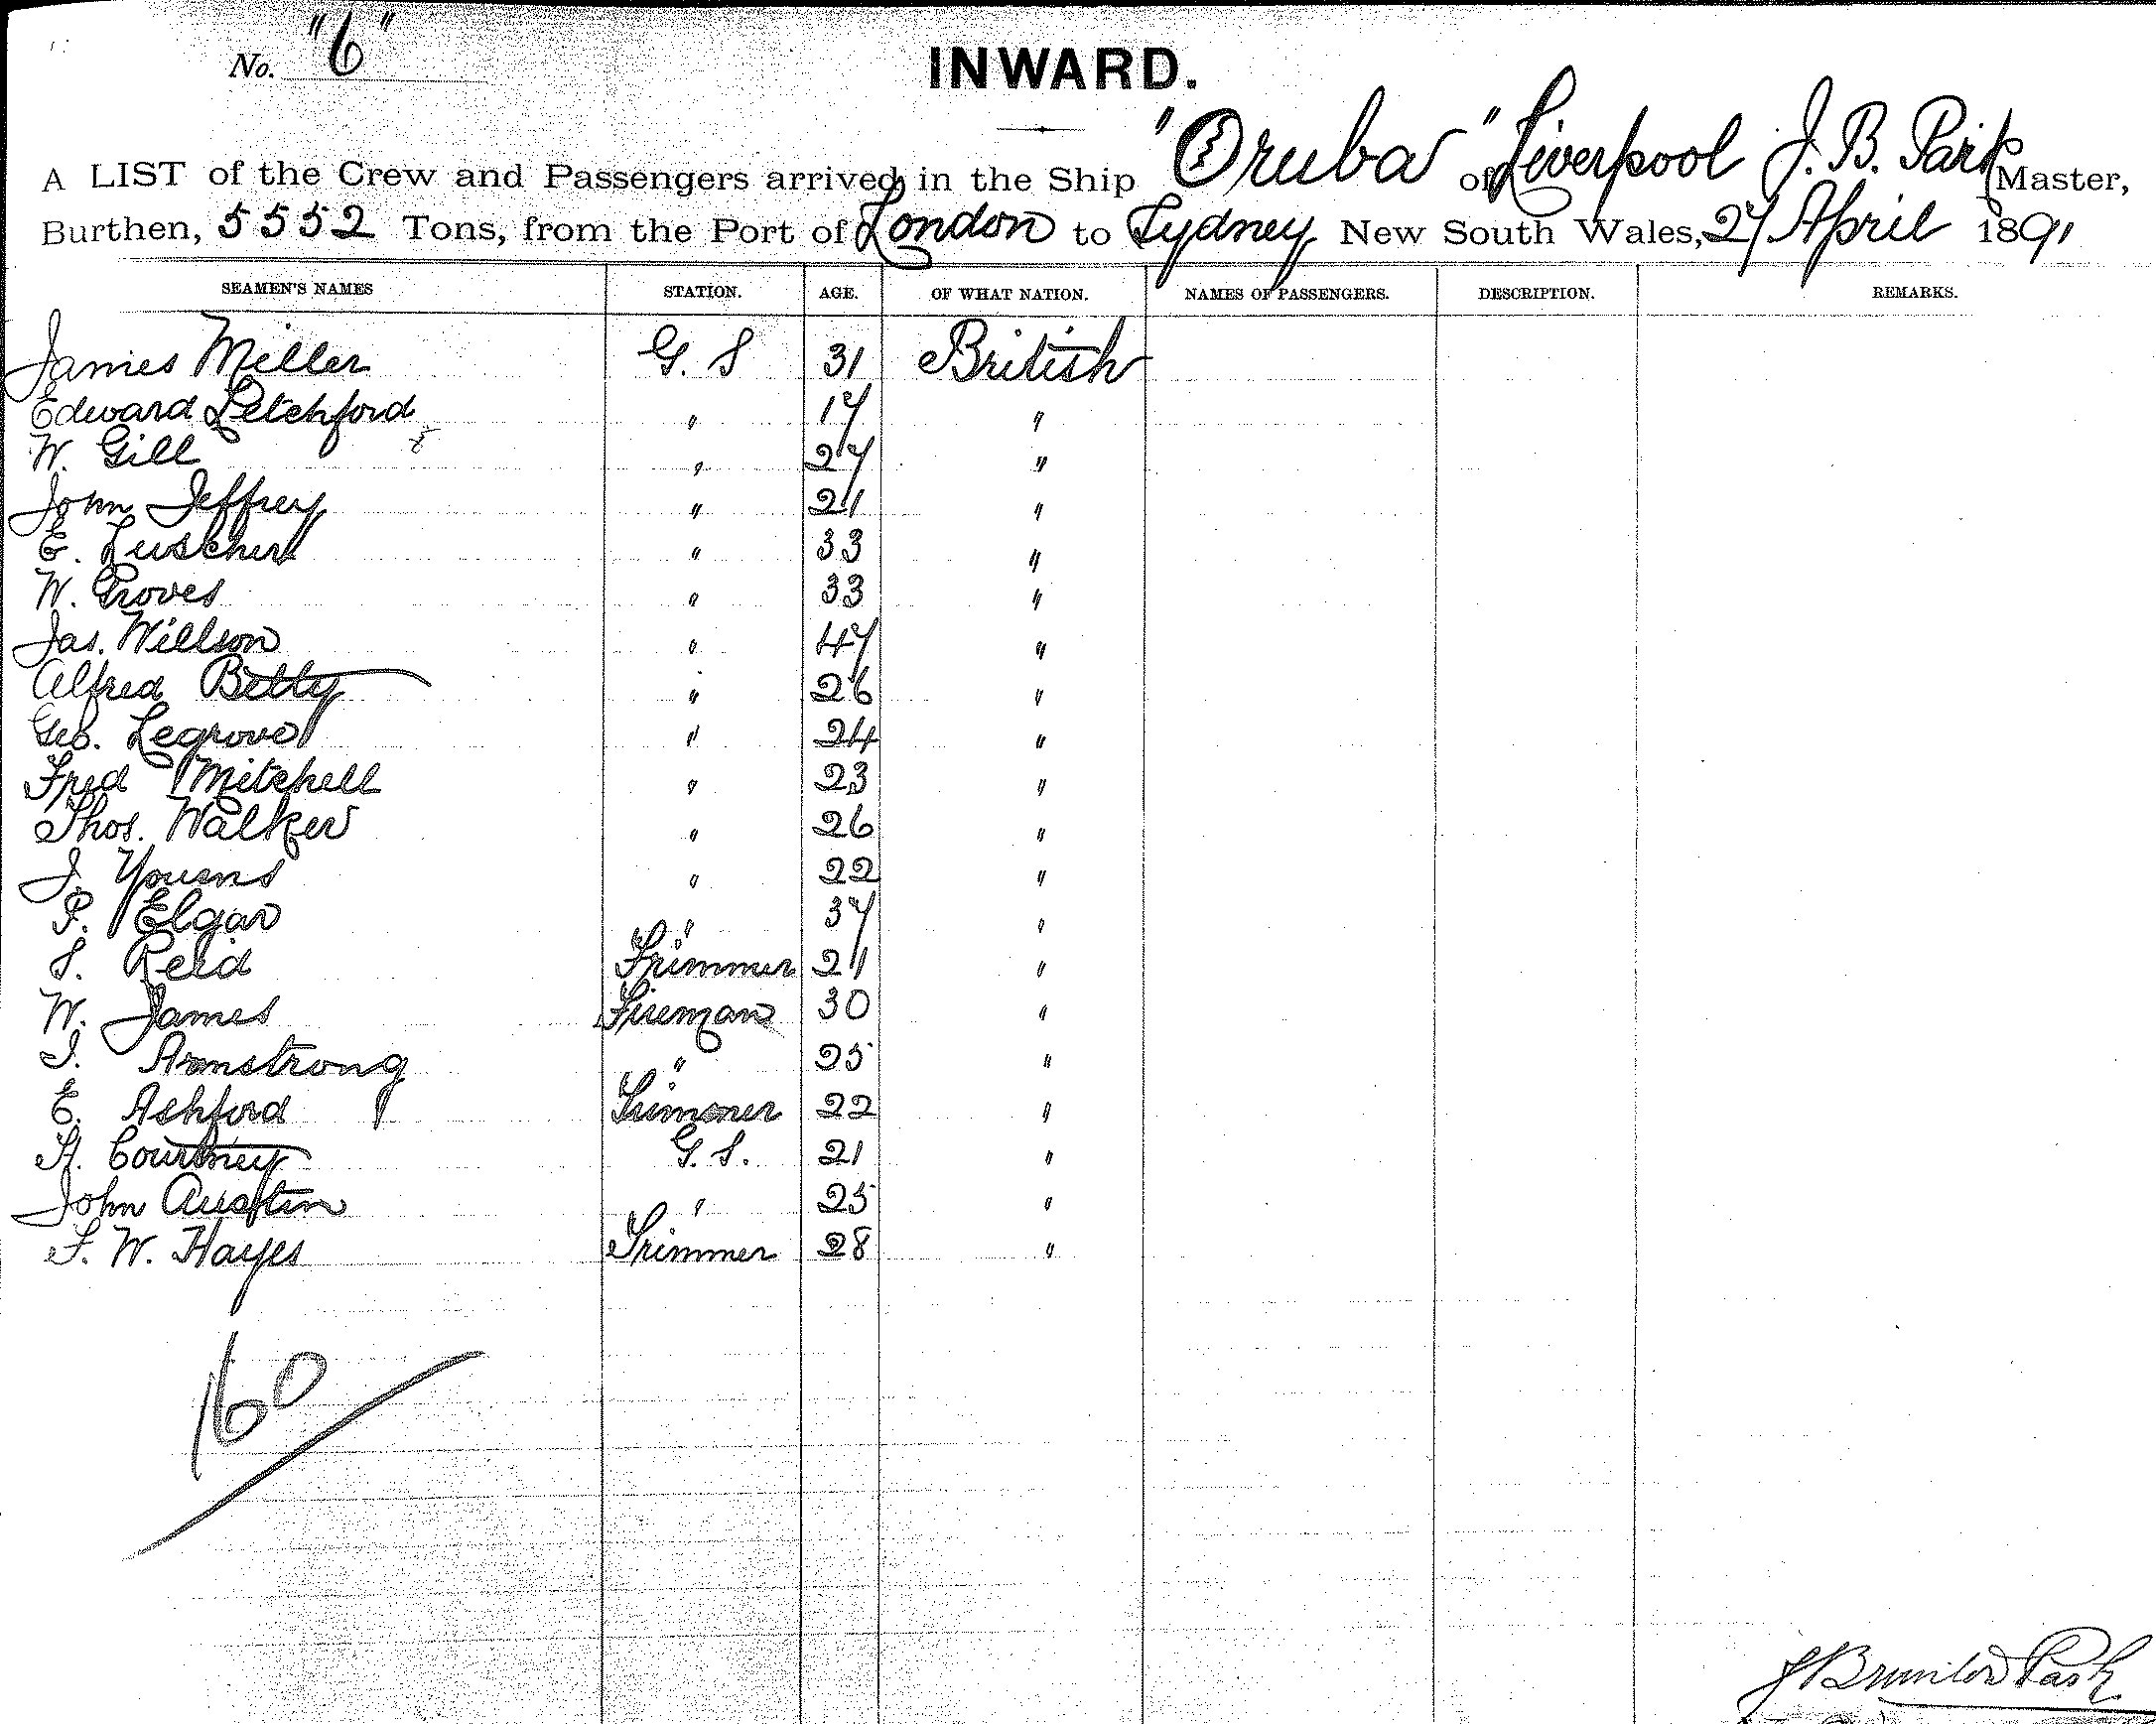 No. "6"
INWARD.
A LIST of the Crew and Passengers arrived in the Ship "Oruba" of Liverpool J. B. Park Master,
Burthen, 5552 Tons, from the Port of London to Sydney New South Wales, 27 April 1891
SEAMEN'S NAMES STATION. AGE. OF WHAT NATION. NAMES OF PASSENGERS. DESCRIPTION. REMARKS.
James Miller G. S 31 British
Edward Letchford " 17 "
W. Gill " 27 "
John Jeffrey " 21 "
E. " 33 "
W. Groves " 33 "
Jas. Willson " 47 "
Alfred Betty " 26 "
Geo. Legrove " 24 "
Fred Mitchell " 23 "
Thos. Walker " 26 "
J. Youens " 22 "
P. Elgar " 37 "
S. Reid Trimmer 21 "
W. James Fireman 30 "
J. Armstrong " 25 "
E. Ashford Trimmer 22 "
H. Courtney G. S. 21 "
John Austin " 25 "
F. W. Hayes Trimmer 28 "
160
J Park